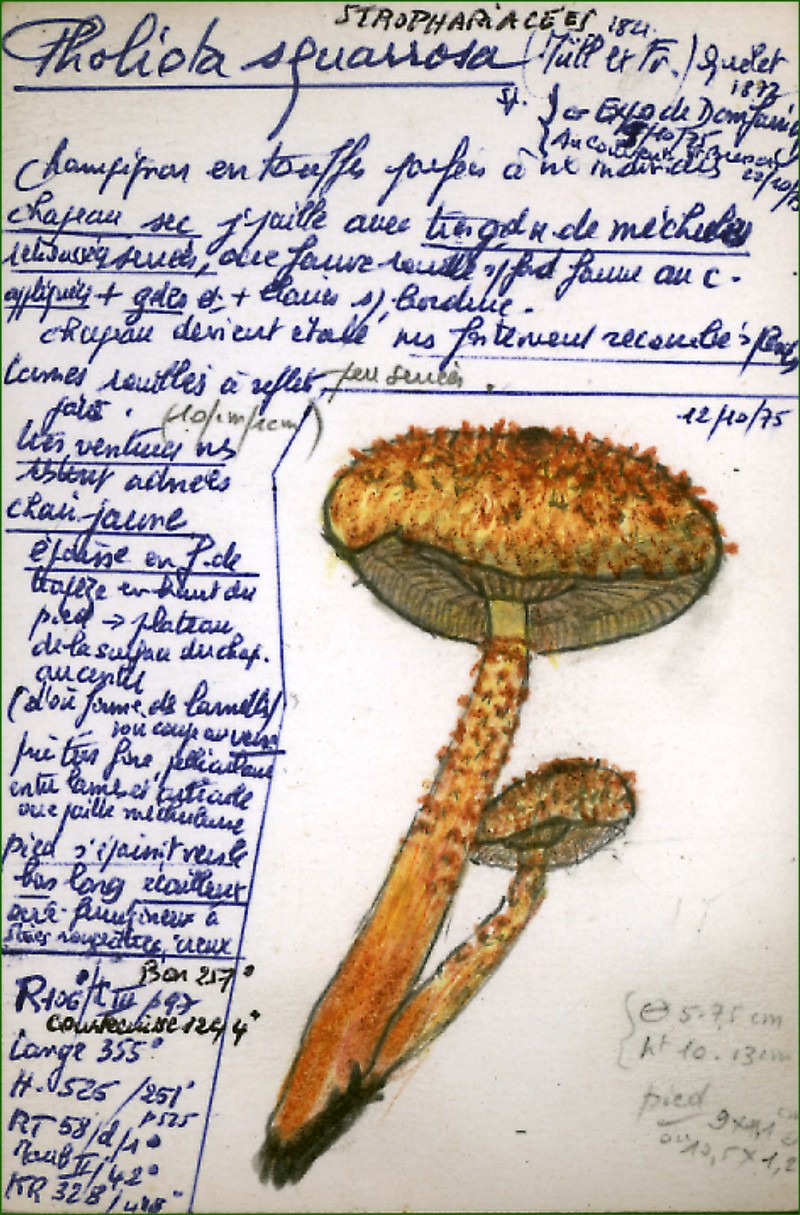 STROPHARIACÉES 184.
Pholiota squarrosa (Müll et Fr.) Quélet
1872
Expo de Domfaing
Champignon en touffes parfois à nx individus 22/10/75
chapeau sec j paille avec très gd n. de méchules
retroussées serrées, ocre fauve rouille s/ fd jaune au c.
appliquées + gdes et + claires s/ bordure.
chapeau devient étalé ms fortement recourbé
lames rouillés à reflet peu serrées.
(10/cm/1cm) 12/10/75
très ventrues ms
adnées
chair jaune
épaisse en f. de
trapèze en haut du
pied → plateau
de la surface du chap.
au centre
(d'où forme de lamelles
sur coupe au verso
très fine,
entre lames et
ocre paille méchuleuse
pied s'épaissit vers le
bas long écailleux
ocré ferrugineux à
stries rougeâtres, creux
Bon 257°
R106°/t III p 97
Courtecuisse 124/4°
Lange 355°
H. 525 /251°
p525
RT 58/d/1°
Maub II/42°
KR 328/448°
Θ 5-7,5 cm
ht 10-13cm
pied
ou 10,5 x 1,2